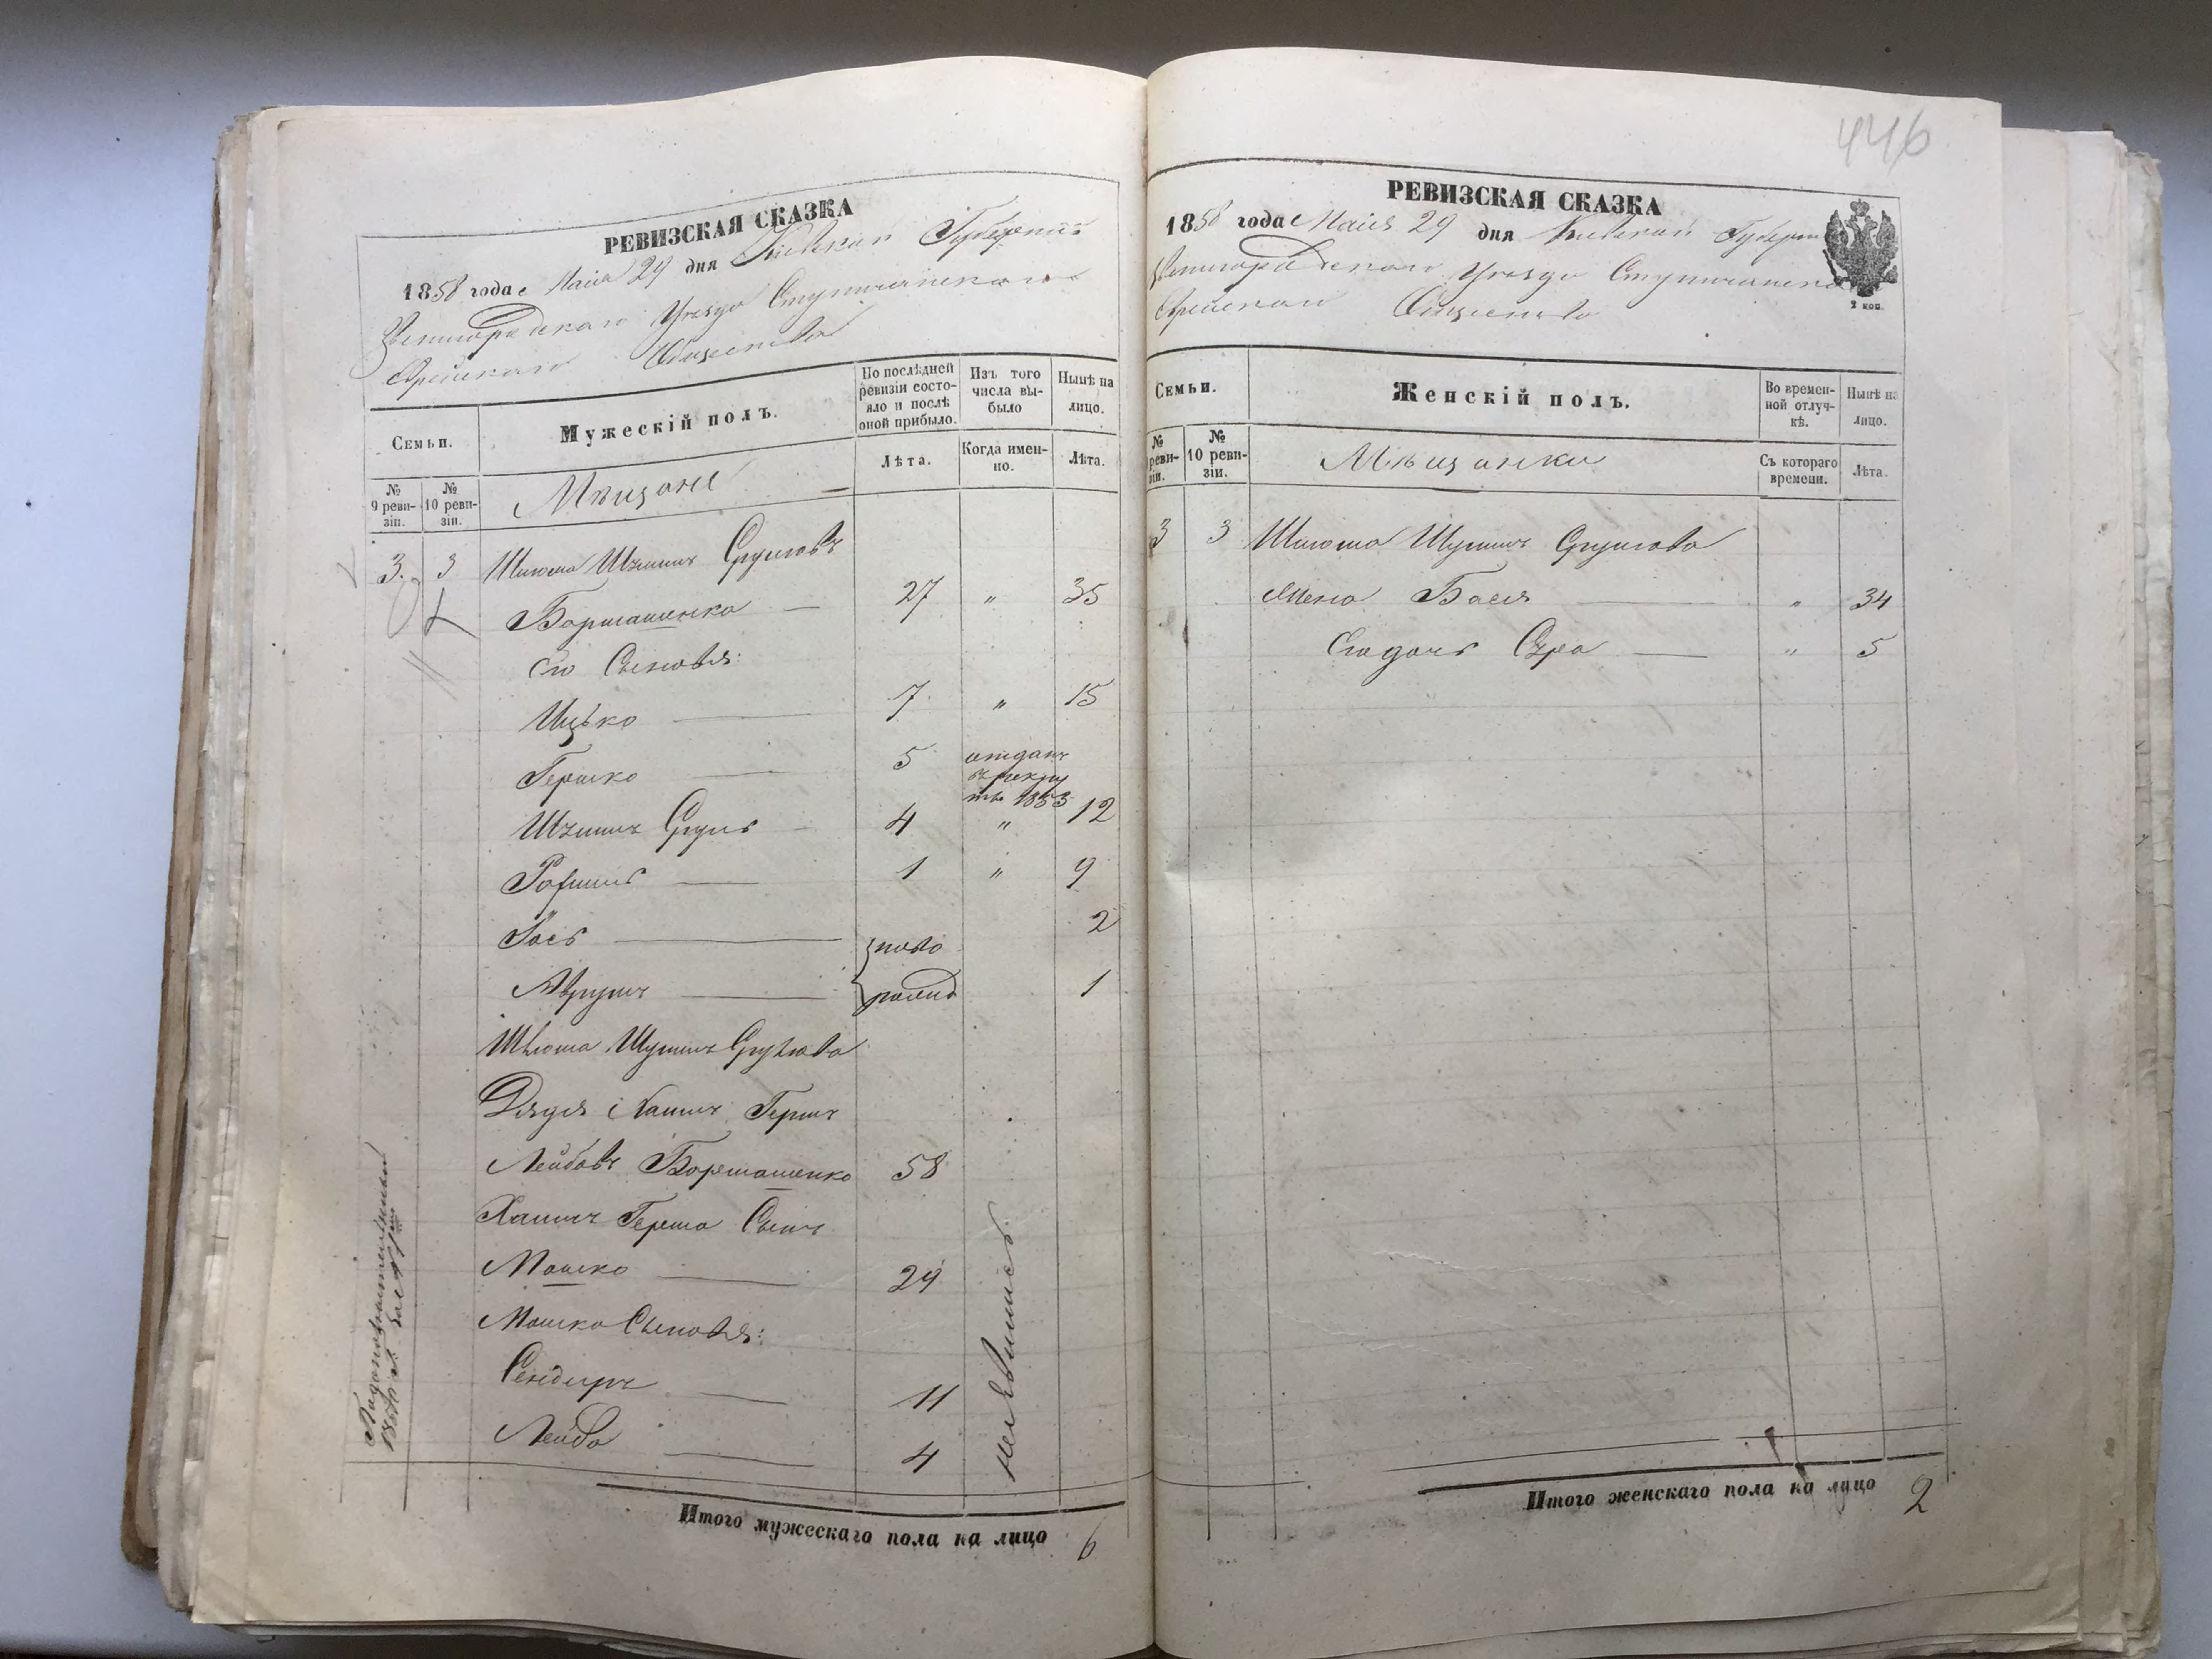 РЕВИЗСКАЯ СКАЗКА
1858 года Маия 29 дня Киевской Губернии
Звенигородскаго Уѣзда
Еврейскаго Общества
Семьи.
Мужескій полъ.
По послѣдней ревизіи состо-
яло и послѣ
оной прибыло.
Изъ того
числа вы-
было
Нынѣ на
лицо.
№
9 реви-
зіи.
№
10 реви-
зіи.
Мѣщане
Лѣта.
Когда имен-
но.
Лѣта.
3. 3 Шлиома
Боршашенко — 27 " 35
Его Сыновья:
Ицько — 7 " 15
Гершко — 5 отданъ
въ рекру
ты 1853
4 " 12
1 " 9
Іось — ново 2
рожд 1
Шлиома
Дядя Хаимъ Гершъ
Лейбовъ Боршашенко 58
Хаимъ Герша Сынъ
Мошко — 29
Мошка Сыновья:
Сендиръ — 11
Лейба — 4
не явились
Итого мужескаго пола на лицо 6
446
РЕВИЗСКАЯ СКАЗКА
1858 года Маия 29 дня Киевской Губерн
Звенигородскаго Уѣзда
Еврейскаго Общества
2 коп.
Семьи.
Женскій полъ.
Во времен-
ной отлуч-
кѣ.
Нынѣ на
лицо.
№
реви-
зіи.
№
10 реви-
зіи.
Мѣщанки
Съ котораго
времени.
Лѣта.
3 3 Шлиома
Жена Бася — " 34
Его дочь Сура — " 5
Итого женскаго пола на лицо 2